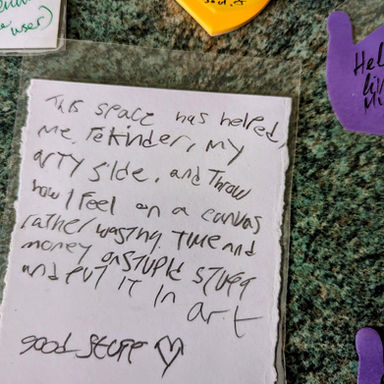 user)
This space has helped,
me, rekinder, my
arty side, and Throw
how I feel on a canvas
rather wasting time and
money on stupid stuff
and put it in
art
good stuff ♡
Hel